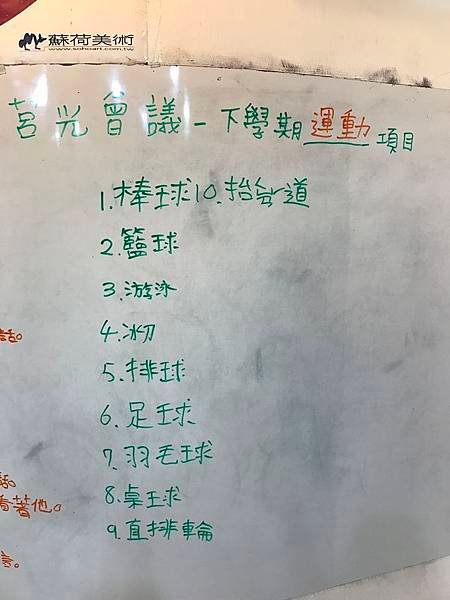 蘇荷美術
www.sohoart.com.tw
莒光會議-下學期運動項目
1.棒球10.抬台道
2.籃球
3.游泳
4.冰刀
5.排球
6.足球
7.羽毛球
8.桌球
9.直排輪
話。
看著他。
言。